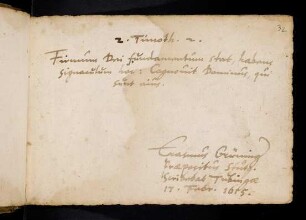 32
2. Timoth. 2.
Firmum Dei fundamentum stat, habens
signaculum hoc: Cognovit Dominus, qui
sunt eius.
Erasmus Grüning
Præpositus Stutg.
scribebat Tubingæ
17. Febr. 1615.